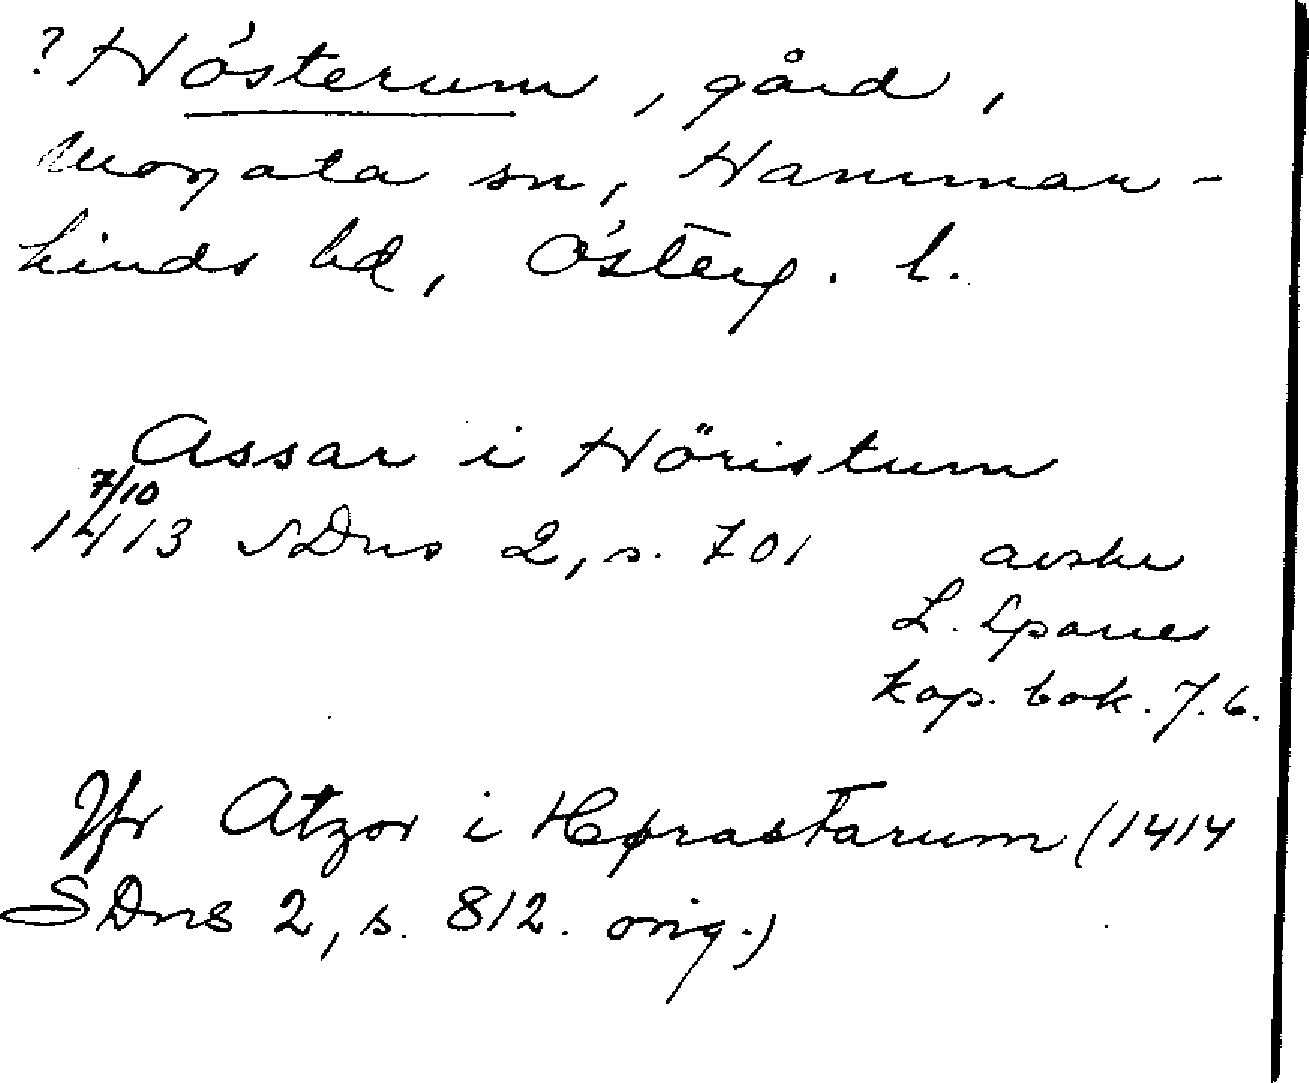 ? Hösterum, gård,
Mogata sn, Hammar-
kinds hd, Österg. l.
Assar i Höristum
7/10
1413 SDns 2, s. 701 avskr
L. Sparres
kop. bok. f. 6.
Jfr Atzor i Hørastarum (1414
SDns 2, s. 812. orig.)